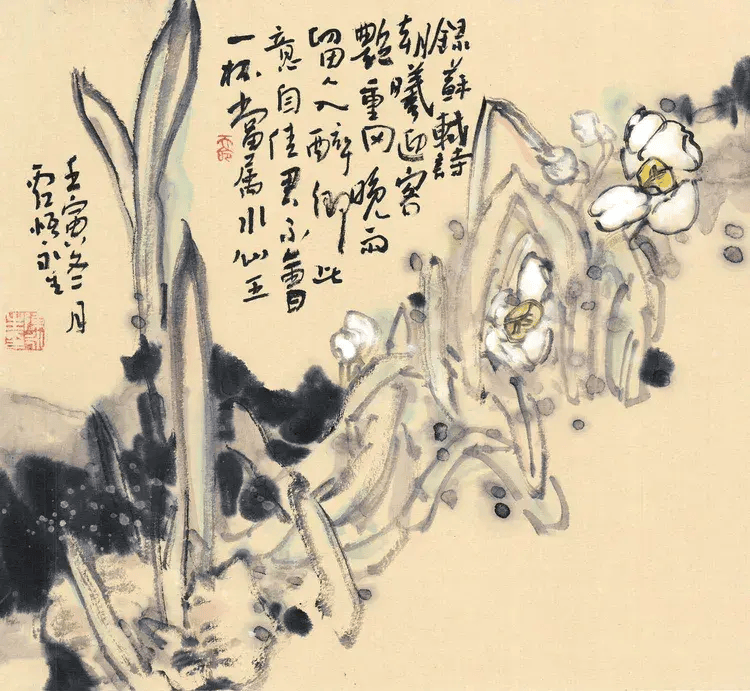 錄蘇軾詩
朝曦迎客
艷重冈晚雨
留人入醉鄉此
意自佳君不會
一杯當屬水仙王
壬寅冬月